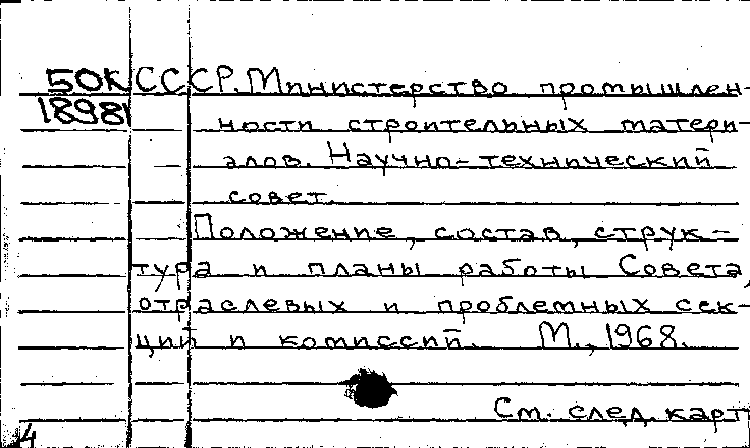 50К СССР. Министерство промышлен-
18981 ности строительных матери-
алов. Научно-технический
совет.
Положение, состав, струк-
тура и планы работы Совета,
отраслевых и проблемных сек-
ций и комиссий. М., 1968.
См. след. карт
4